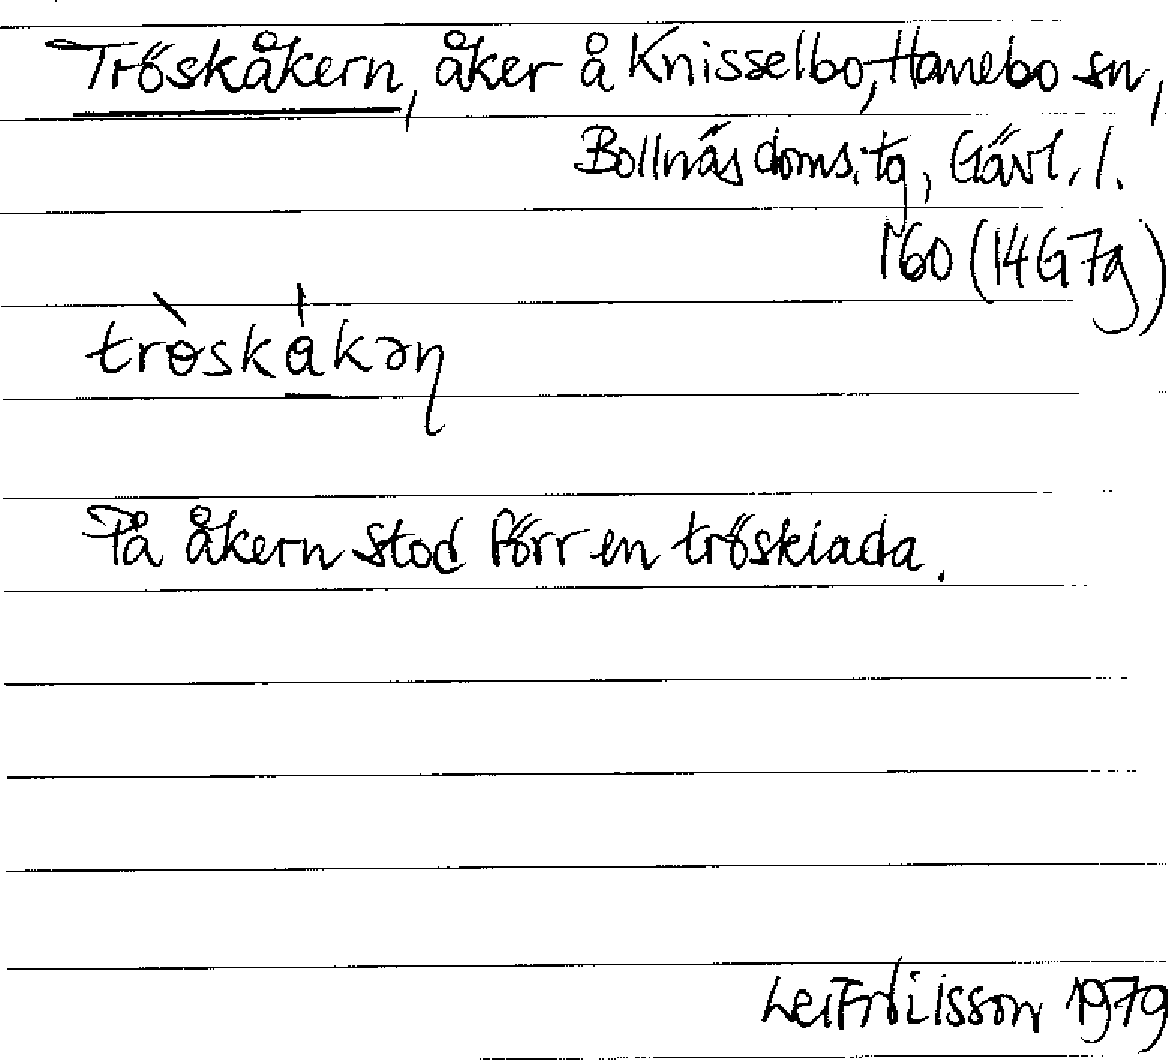 Tröskåkern, åker å Knisselbo, Hanebo sn,
Bollnäs doms.tg, Gävl. l.
160 (14G7g)
trɵ̀skåkəɳ
På åkern stod förr en trösklada.
Leif Nilsson 1979